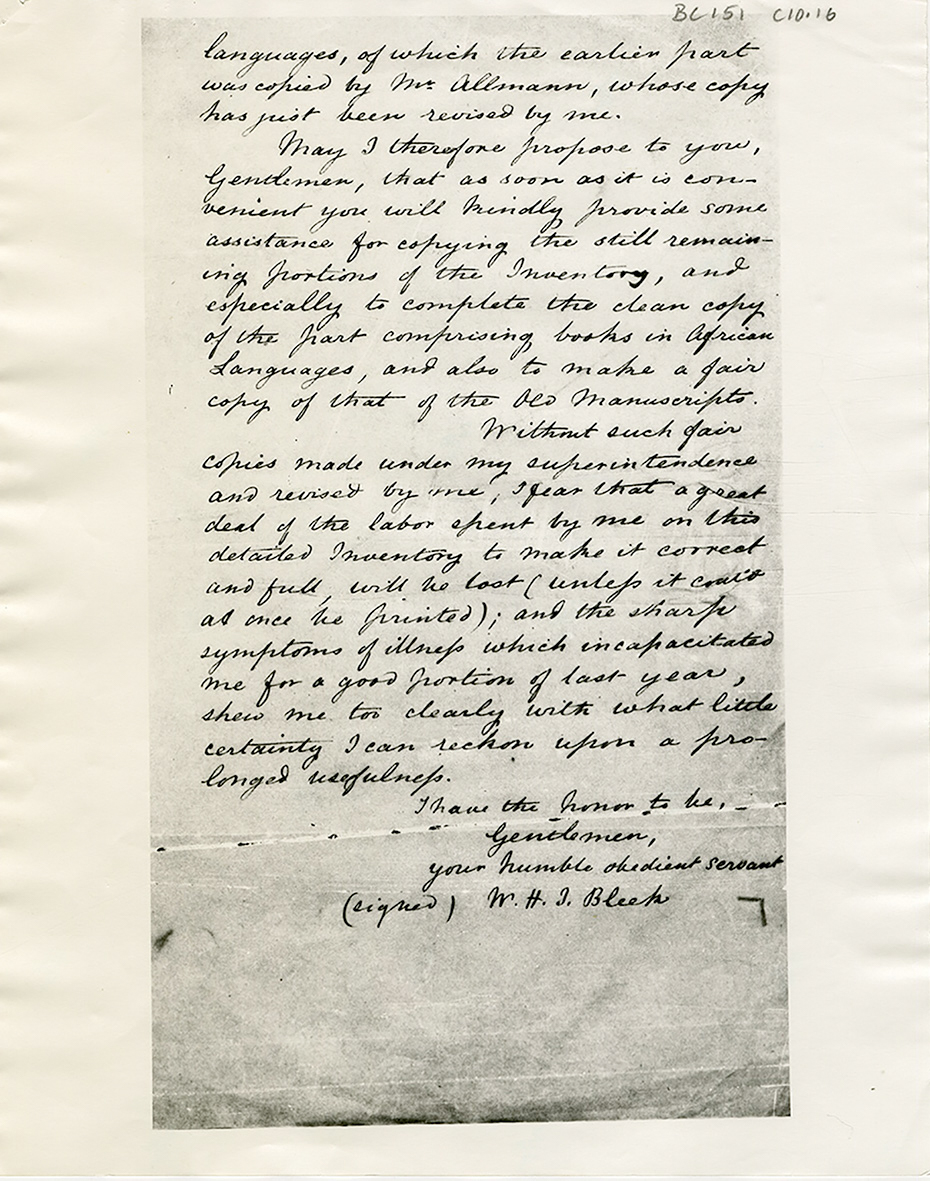 BC151 C10.16
languages, of which the earlier part
was copied by Mr Allmann, whose copy
has just been revised by me.
May I therefore propose to you,
Gentlemen, that as soon as it is con-
venient you will kindly provide some
assistance for copying the still remain-
ing portions of the Inventory, and
especially to complete the clean copy
of the part comprising books in African
Languages, and also to make a fair
copy of that of the Old Manuscripts.
Without such fair
copies made under my superintendence
and revised by me, I fear that a great
deal of the labor spent by me on this
detailed Inventory to make it correct
and full, will be lost (unless it could
at once be printed); and the sharp
symptoms of illness which incapacitated
me for a good portion of last year,
shew me too clearly with what little
certainty I can reckon upon a pro-
longed usefulness.
I have the honor to be,
Gentlemen,
your humble obedient servant
(signed) W. H. I. Bleek